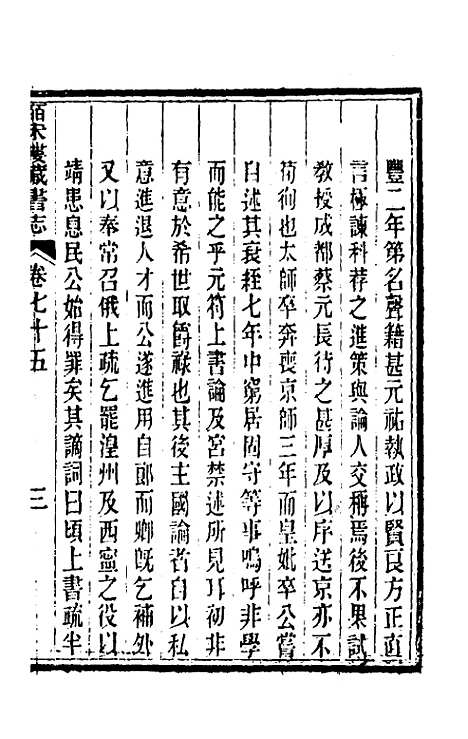 豐二年第名聲籍甚元祐執政以賢良方正直
言極諫科荐之進策與論人交稱焉後不果試
教授成都蔡元長待之甚厚及以序送京亦不
苟徇也太師卒奔喪京師三年而皇妣卒公嘗
自述其衰絰七年中窮居固守等事嗚呼非學
而能之乎元符上書論及宮禁述所見耳初非
有意於希世取爵祿也其後主國論者自以私
意進退人才而公遂進用自郎而卿旣乞補外
又以奉常召俄上疏乞罷湟州及西寧之役以
靖患息民公始得罪矣其謫詞曰頃上書疏半
皕宋樓藏書志
卷七十五
三